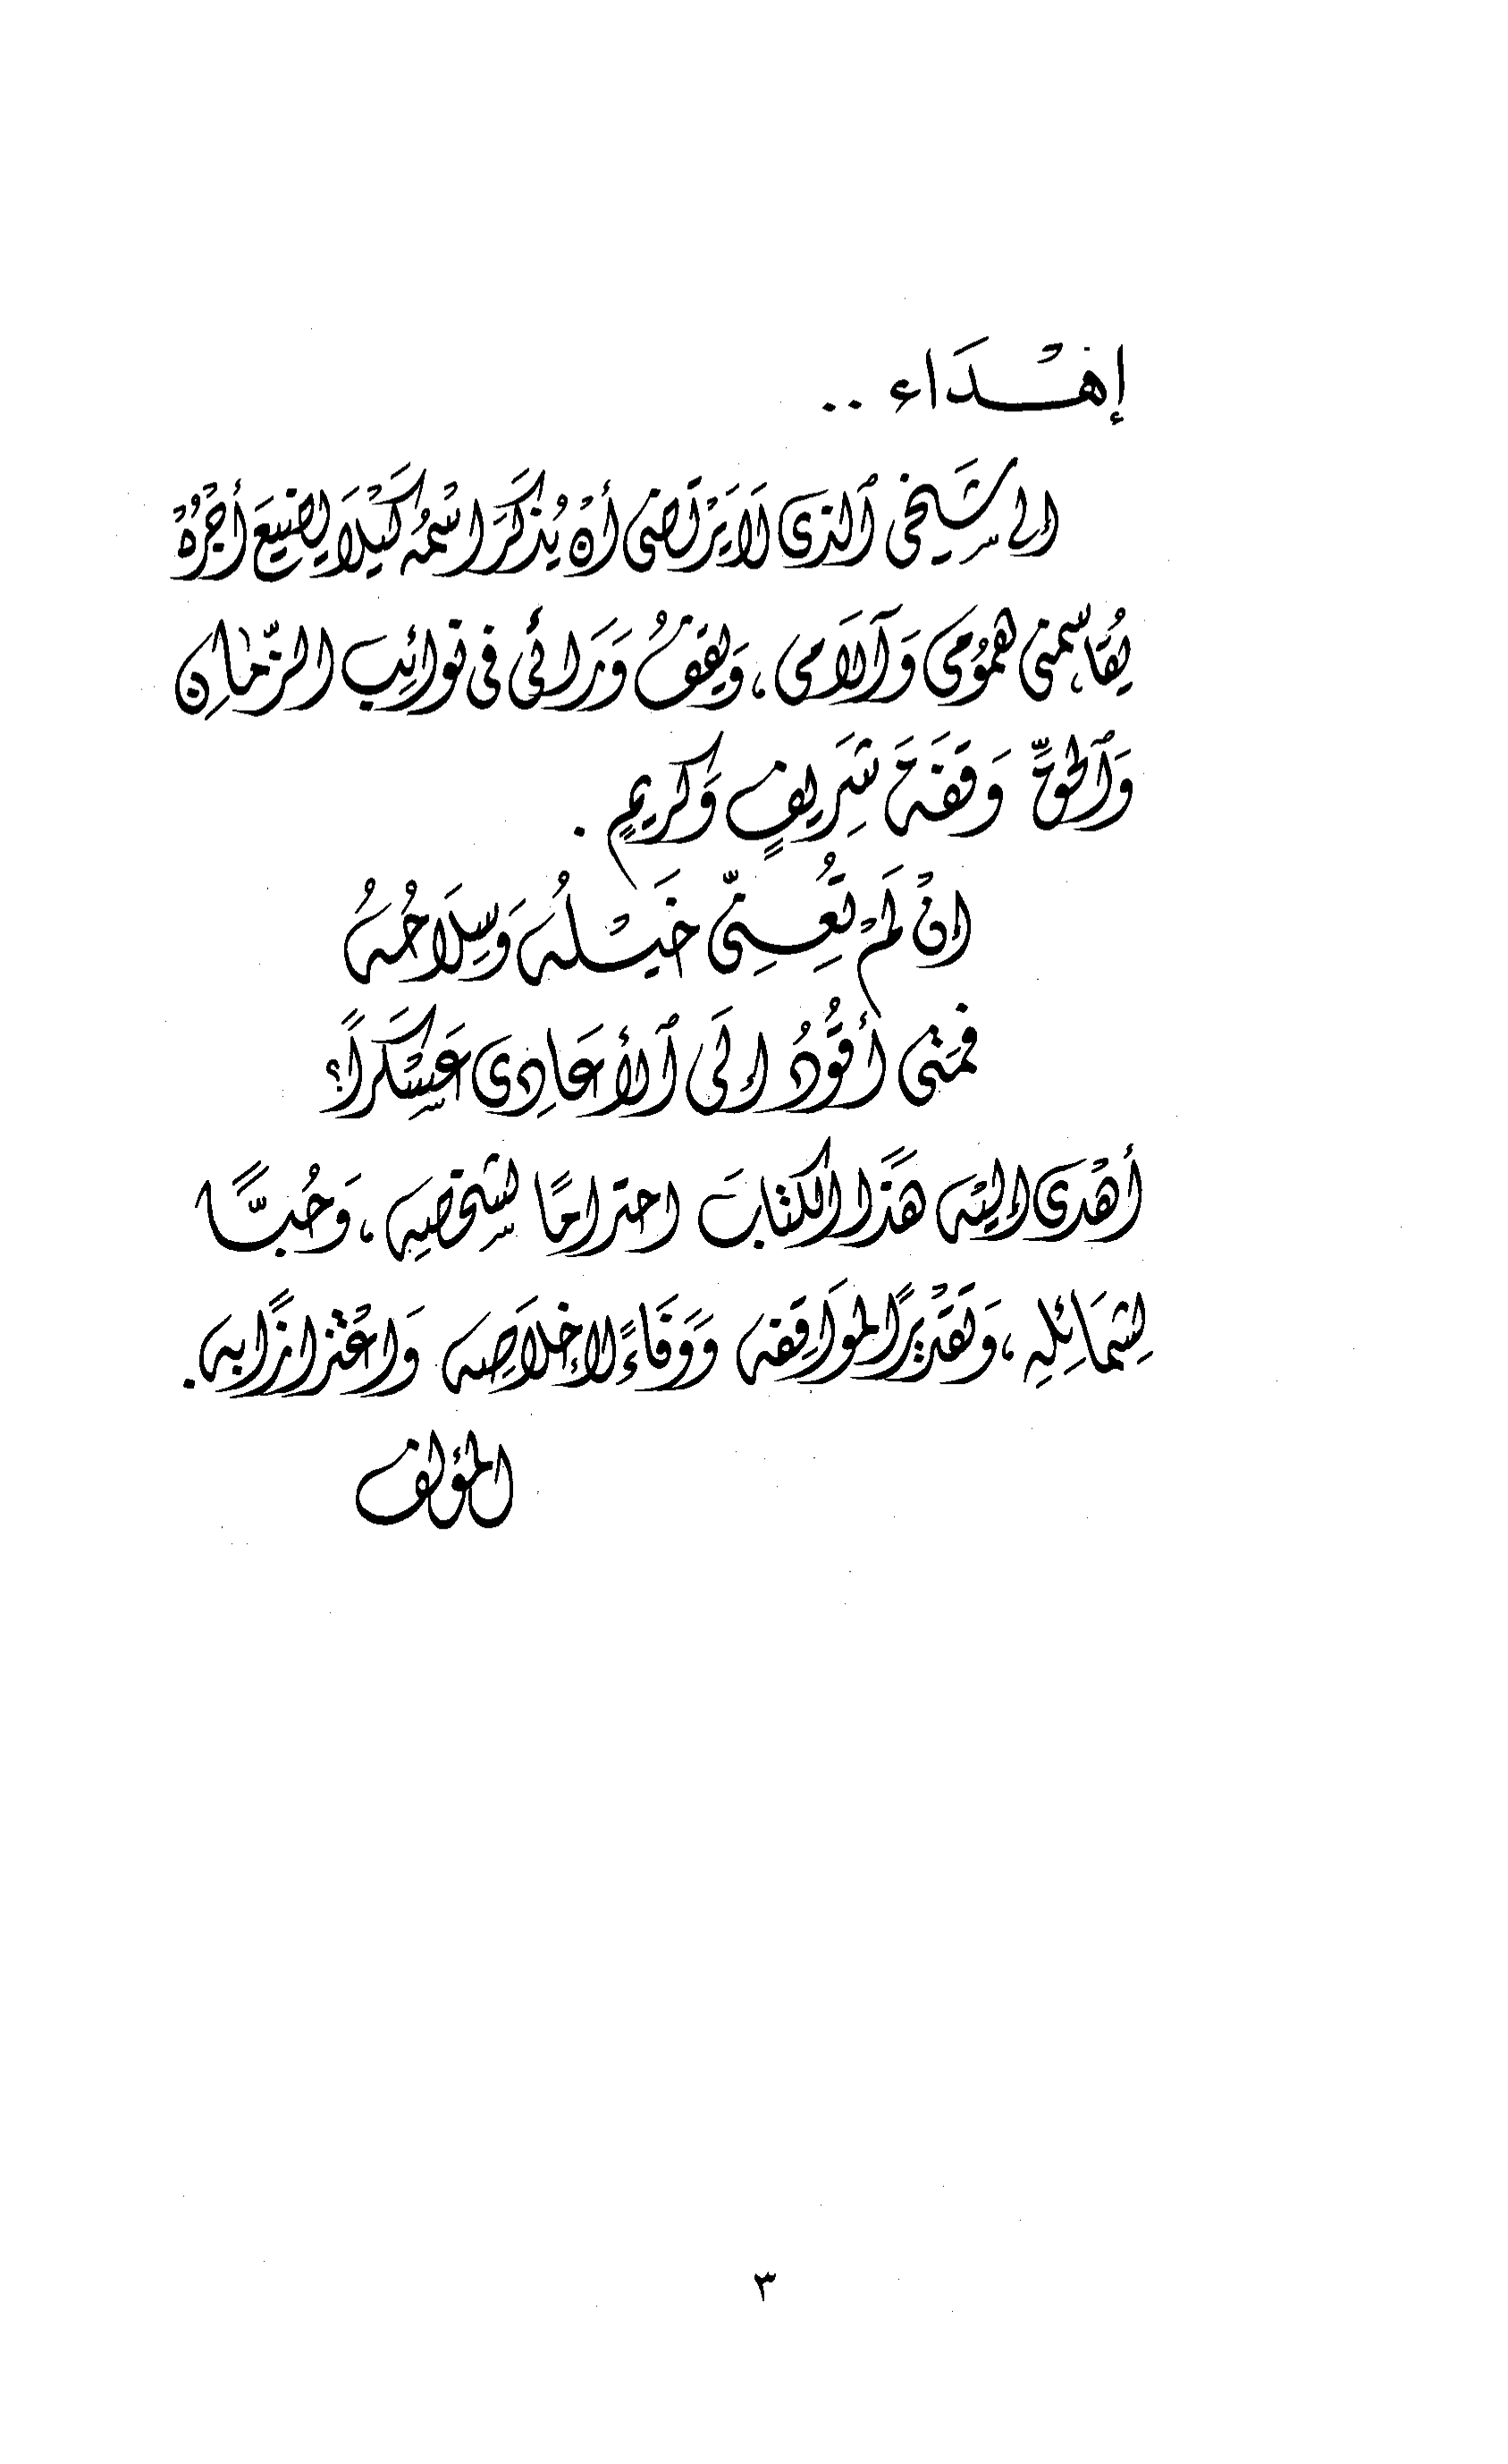 إهْدَاء ..
إلى شَيخى ٱلذى لَا يَرْتَضى أنْ يُذكَرَ اسْمُه كَيْلَا يضيعَ أجْرُهُ
يُقَاسمنى همُومى وَآلَامى ، وَيقفُ وَرَائى فى نوائِب الزّمَانِ
وَٱلحقِّ وَقفَةَ شَرِيفٍ وَكريمٍ .
إنْ لَمْ تُعِنِّى خَيْلُهُ وَسِلَاحُهُ
فمَتى أقُودُ إلَى ٱلأعَادِى عَسْكَرَاً؟
أهْدى إليْه هَذَا الكتَابَ احترامًا لشخصِه ، وَحُبًّا
لِشمَائِلِهِ ، وَتَقدْيرًا لموَاقِفه وَوَفَاءً لإخلَاصِه وَاعْتزازًا به .
المؤلف
٣